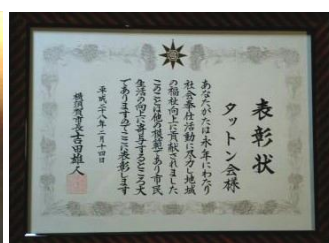 表彰状
タットン会様
あなたがたは永年にわたり
社会奉仕活動に尽力し地域
の福祉向上に貢献されました
このことは他の模範であり市民
生活の向上に寄与するところ大
でありますのでここに表彰します
平成二八年二月十四日
横須賀市長吉田雄人